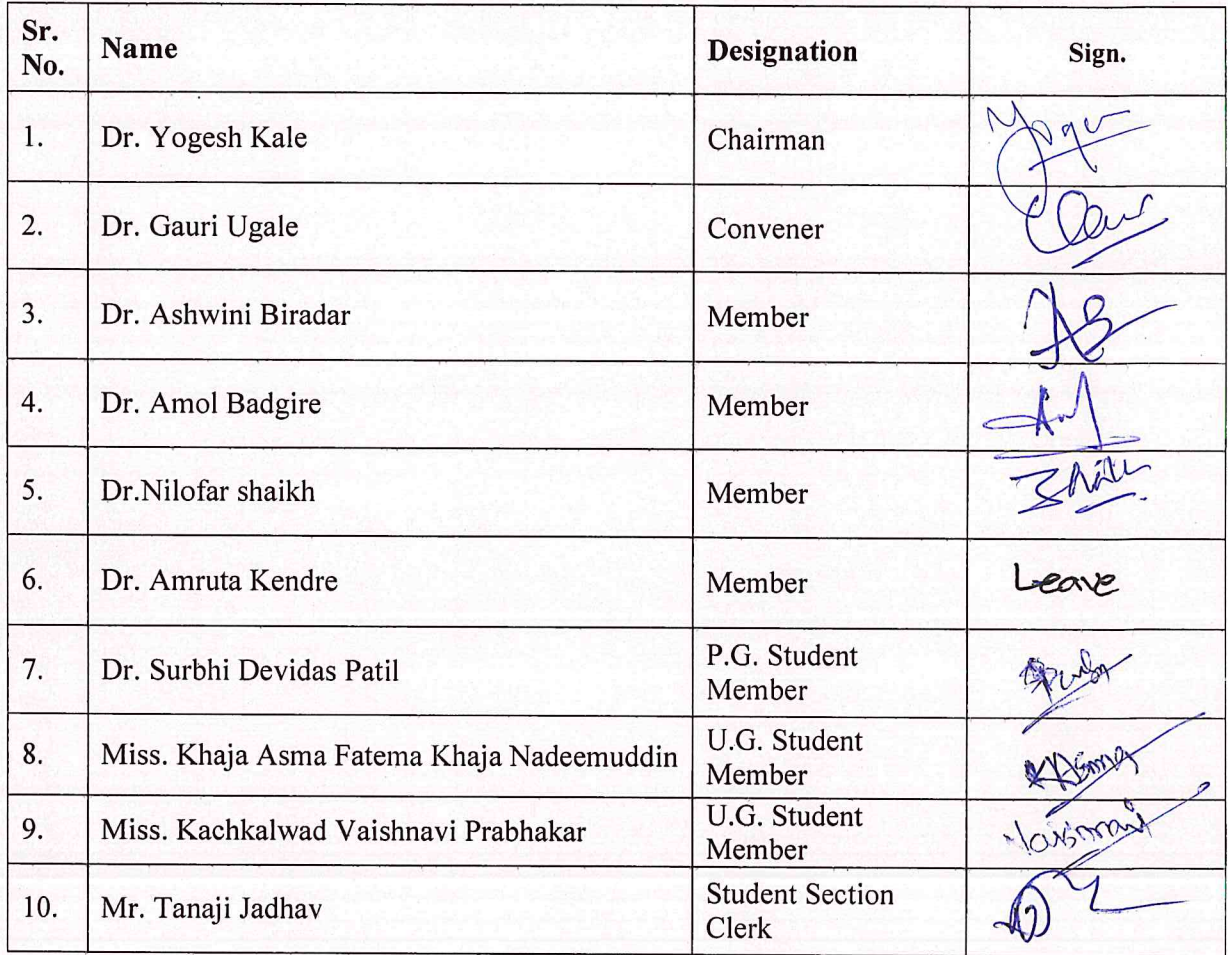 Sr. No. Name Designation Sign.
1. Dr. Yogesh Kale Chairman
2. Dr. Gauri Ugale Convener
3. Dr. Ashwini Biradar Member AB
4. Dr. Amol Badgire Member
5. Dr.Nilofar shaikh Member
6. Dr. Amruta Kendre Member Leave
7. Dr. Surbhi Devidas Patil P.G. Student
Member
8. Miss. Khaja Asma Fatema Khaja Nadeemuddin U.G. Student
Member
9. Miss. Kachkalwad Vaishnavi Prabhakar U.G. Student
Member
10. Mr. Tanaji Jadhav Student Section
Clerk